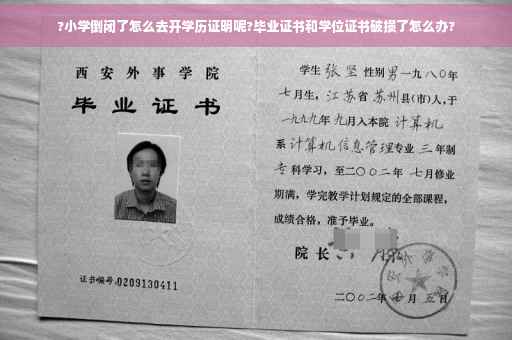 ?小学倒闭了怎么去开学历证明呢?毕业证书和学位证书破损了怎么办?
西安外事学院
毕业证书
证书编号:0209130411
学生 张坚 性别男一九八〇年
七月生，江苏省苏州县(市)人,于
一九九九年九月入本院 计算机
系计算机信息管理专业 三 年制
专科学习，至二〇〇二年 七月修业
期满，学完教学计划规定的全部课程，
成绩合格，准予毕业。
院长
二〇〇二年 月五日